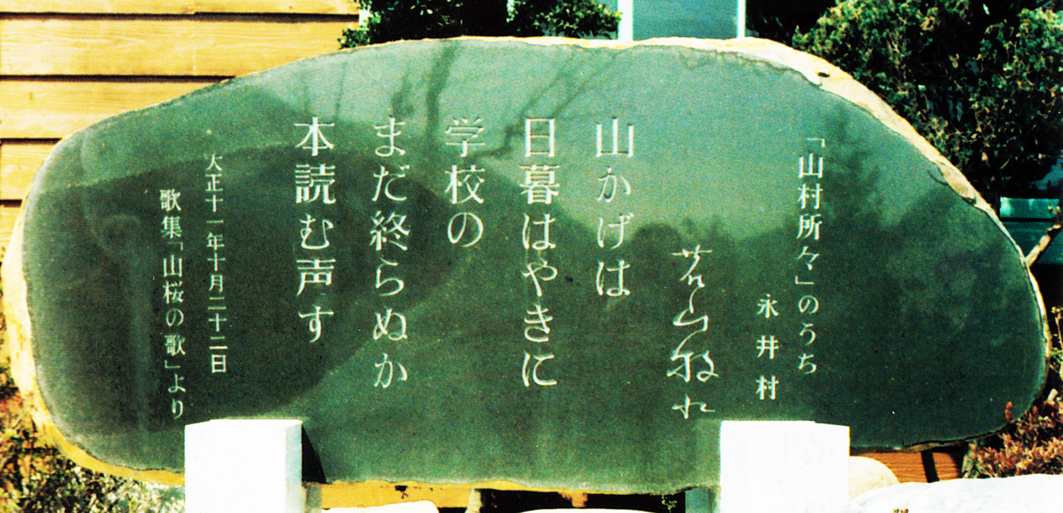 「山村所々」のうち
永井村
若山牧水
山かげは
日暮はやきに
学校の
まだ終らぬか
本読む声す
大正十一年十月二十二日
歌集「山桜の歌」より